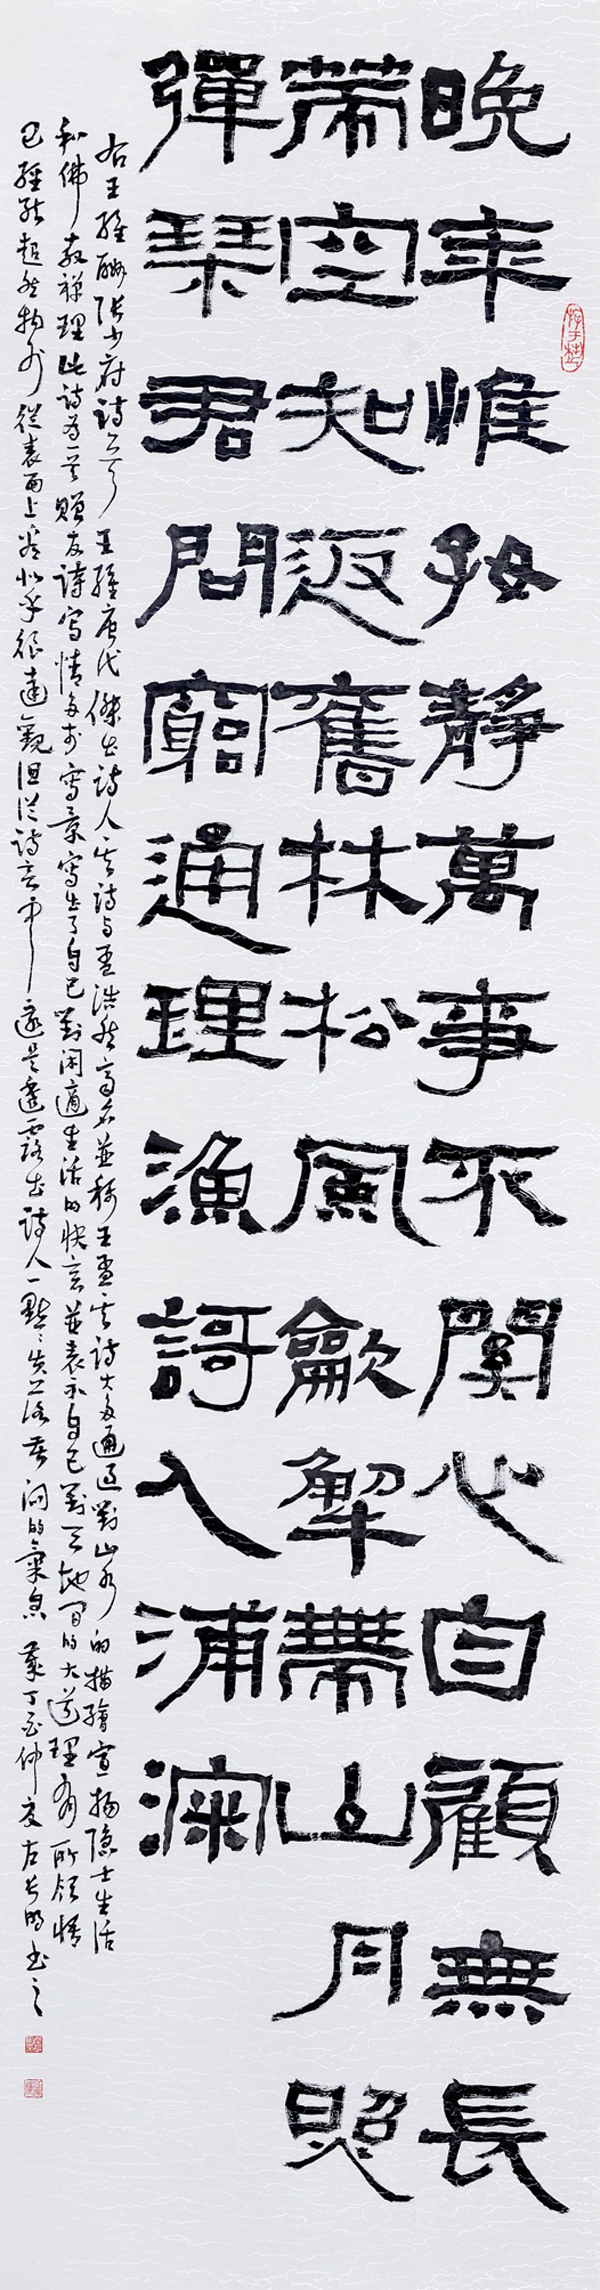 晚年惟好靜萬事不關心自顧無長
策空知返舊林松風龡解帶山月照
彈琴君問窮通理漁謌入浦深
右王維酬張少府詩一首 王維唐代傑出詩人其詩与孟浩然齊名並稱王孟其詩大多通過對山水的描繪宣揚隱士生活
和佛教禪理此詩為一首贈友詩寫情多於寫景寫出了自己對閑適生活的快意並表示自己對天地间的大道理有所領悟
已經能超然物外從表面上看似乎很達觀但從詩意中還是透露出詩人一點點失落苦闷的氣息 歲丁酉仲夏左長明書之